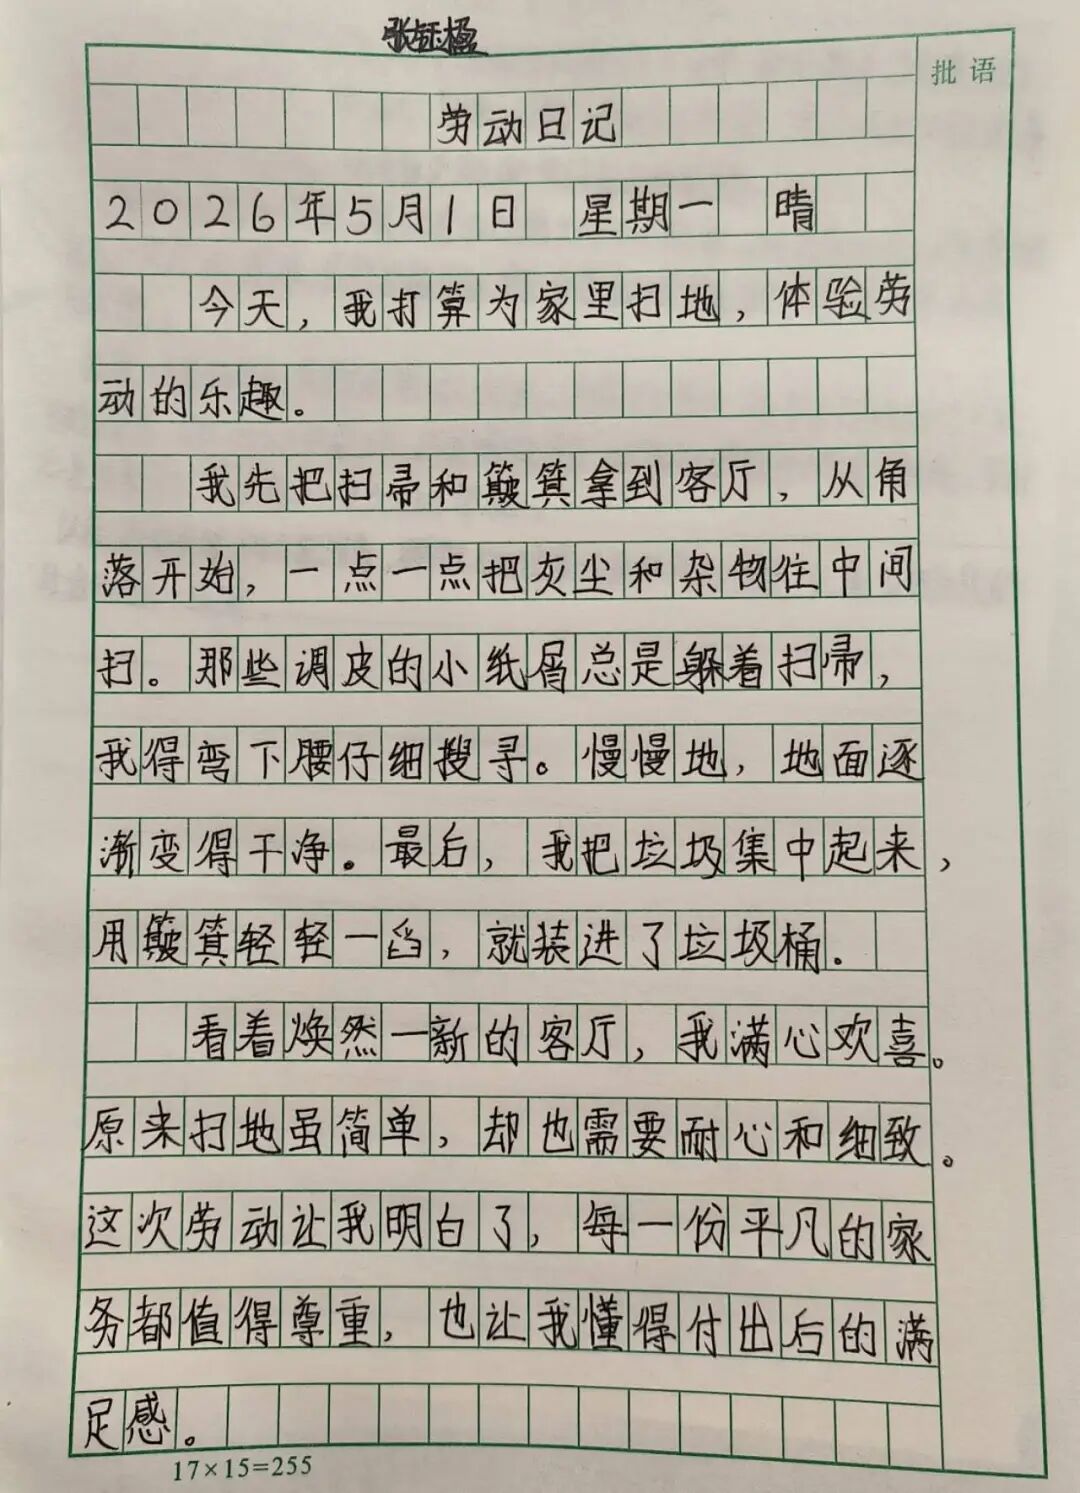 张钰楹
批语
劳动日记
2026年5月1日 星期一 晴
今天，我打算为家里扫地，体验劳
动的乐趣。
我先把扫帚和簸箕拿到客厅，从角
落开始，一点一点把灰尘和杂物往中间
扫。那些调皮的小纸屑总是躲着扫帚，
我得弯下腰仔细搜寻。慢慢地，地面逐
渐变得干净。最后，我把垃圾集中起来，
用簸箕轻轻一舀，就装进了垃圾桶.
看着焕然一新的客厅，我满心欢喜。
原来扫地虽简单，却也需要耐心和细致。
这次劳动让我明白了，每一份平凡的家
务都值得尊重，也让我懂得付出后的满
足感。
17×15=255